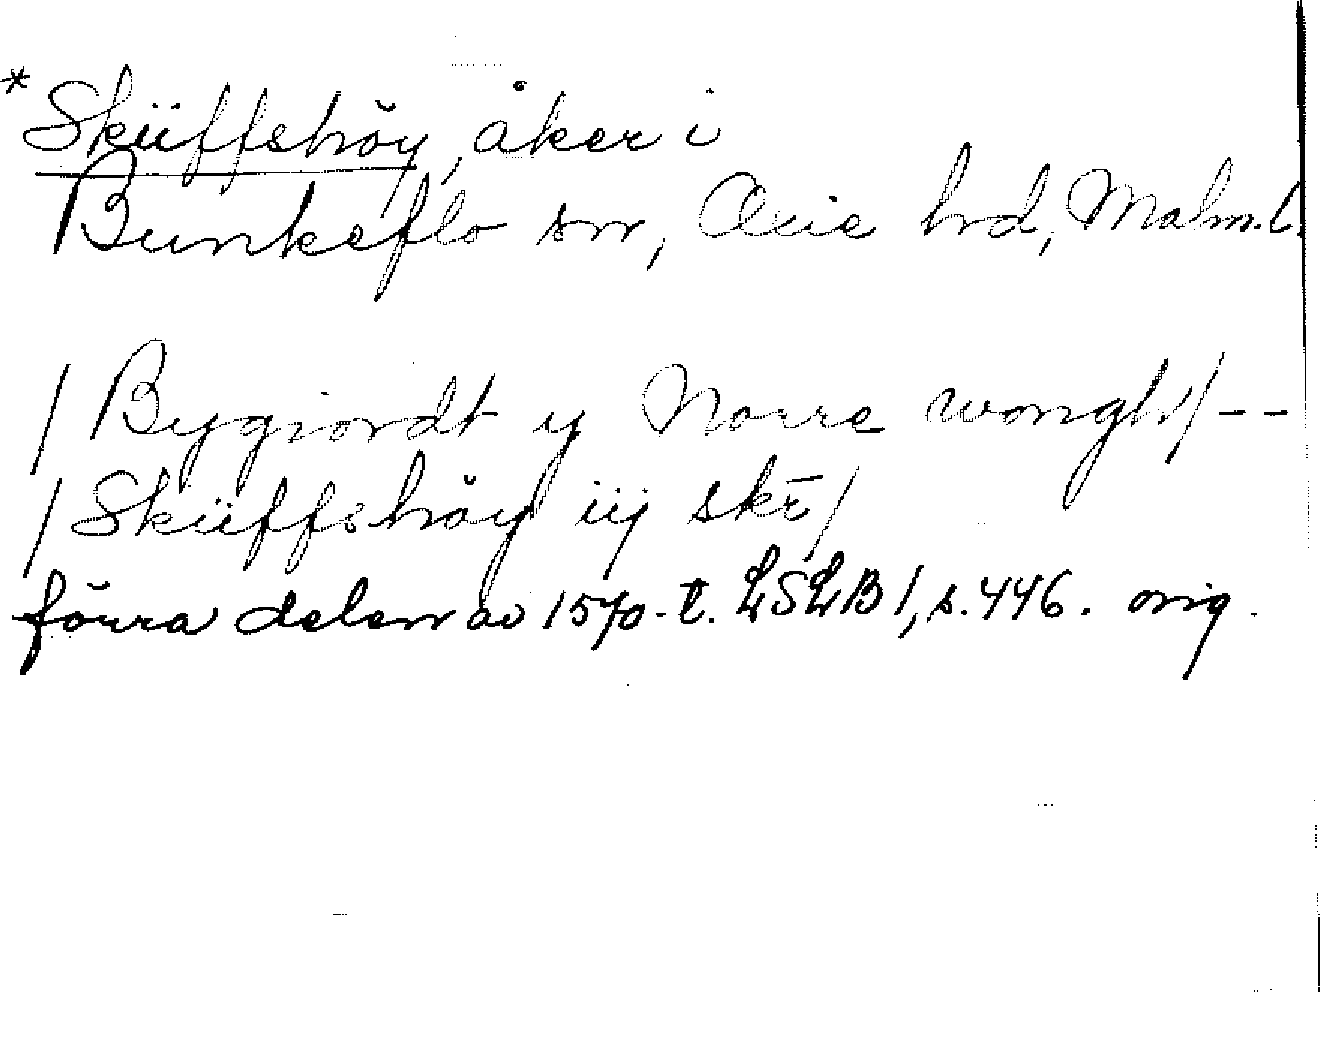 *Sküffshöy, åker i
Bunkeflo sn, Oxie hrd, Malm.l.
/Bygiordt y Norre wongh/--
/Sküffshöy iij skr/
förra delen av 1570-t. LSLB 1, s.446. orig.